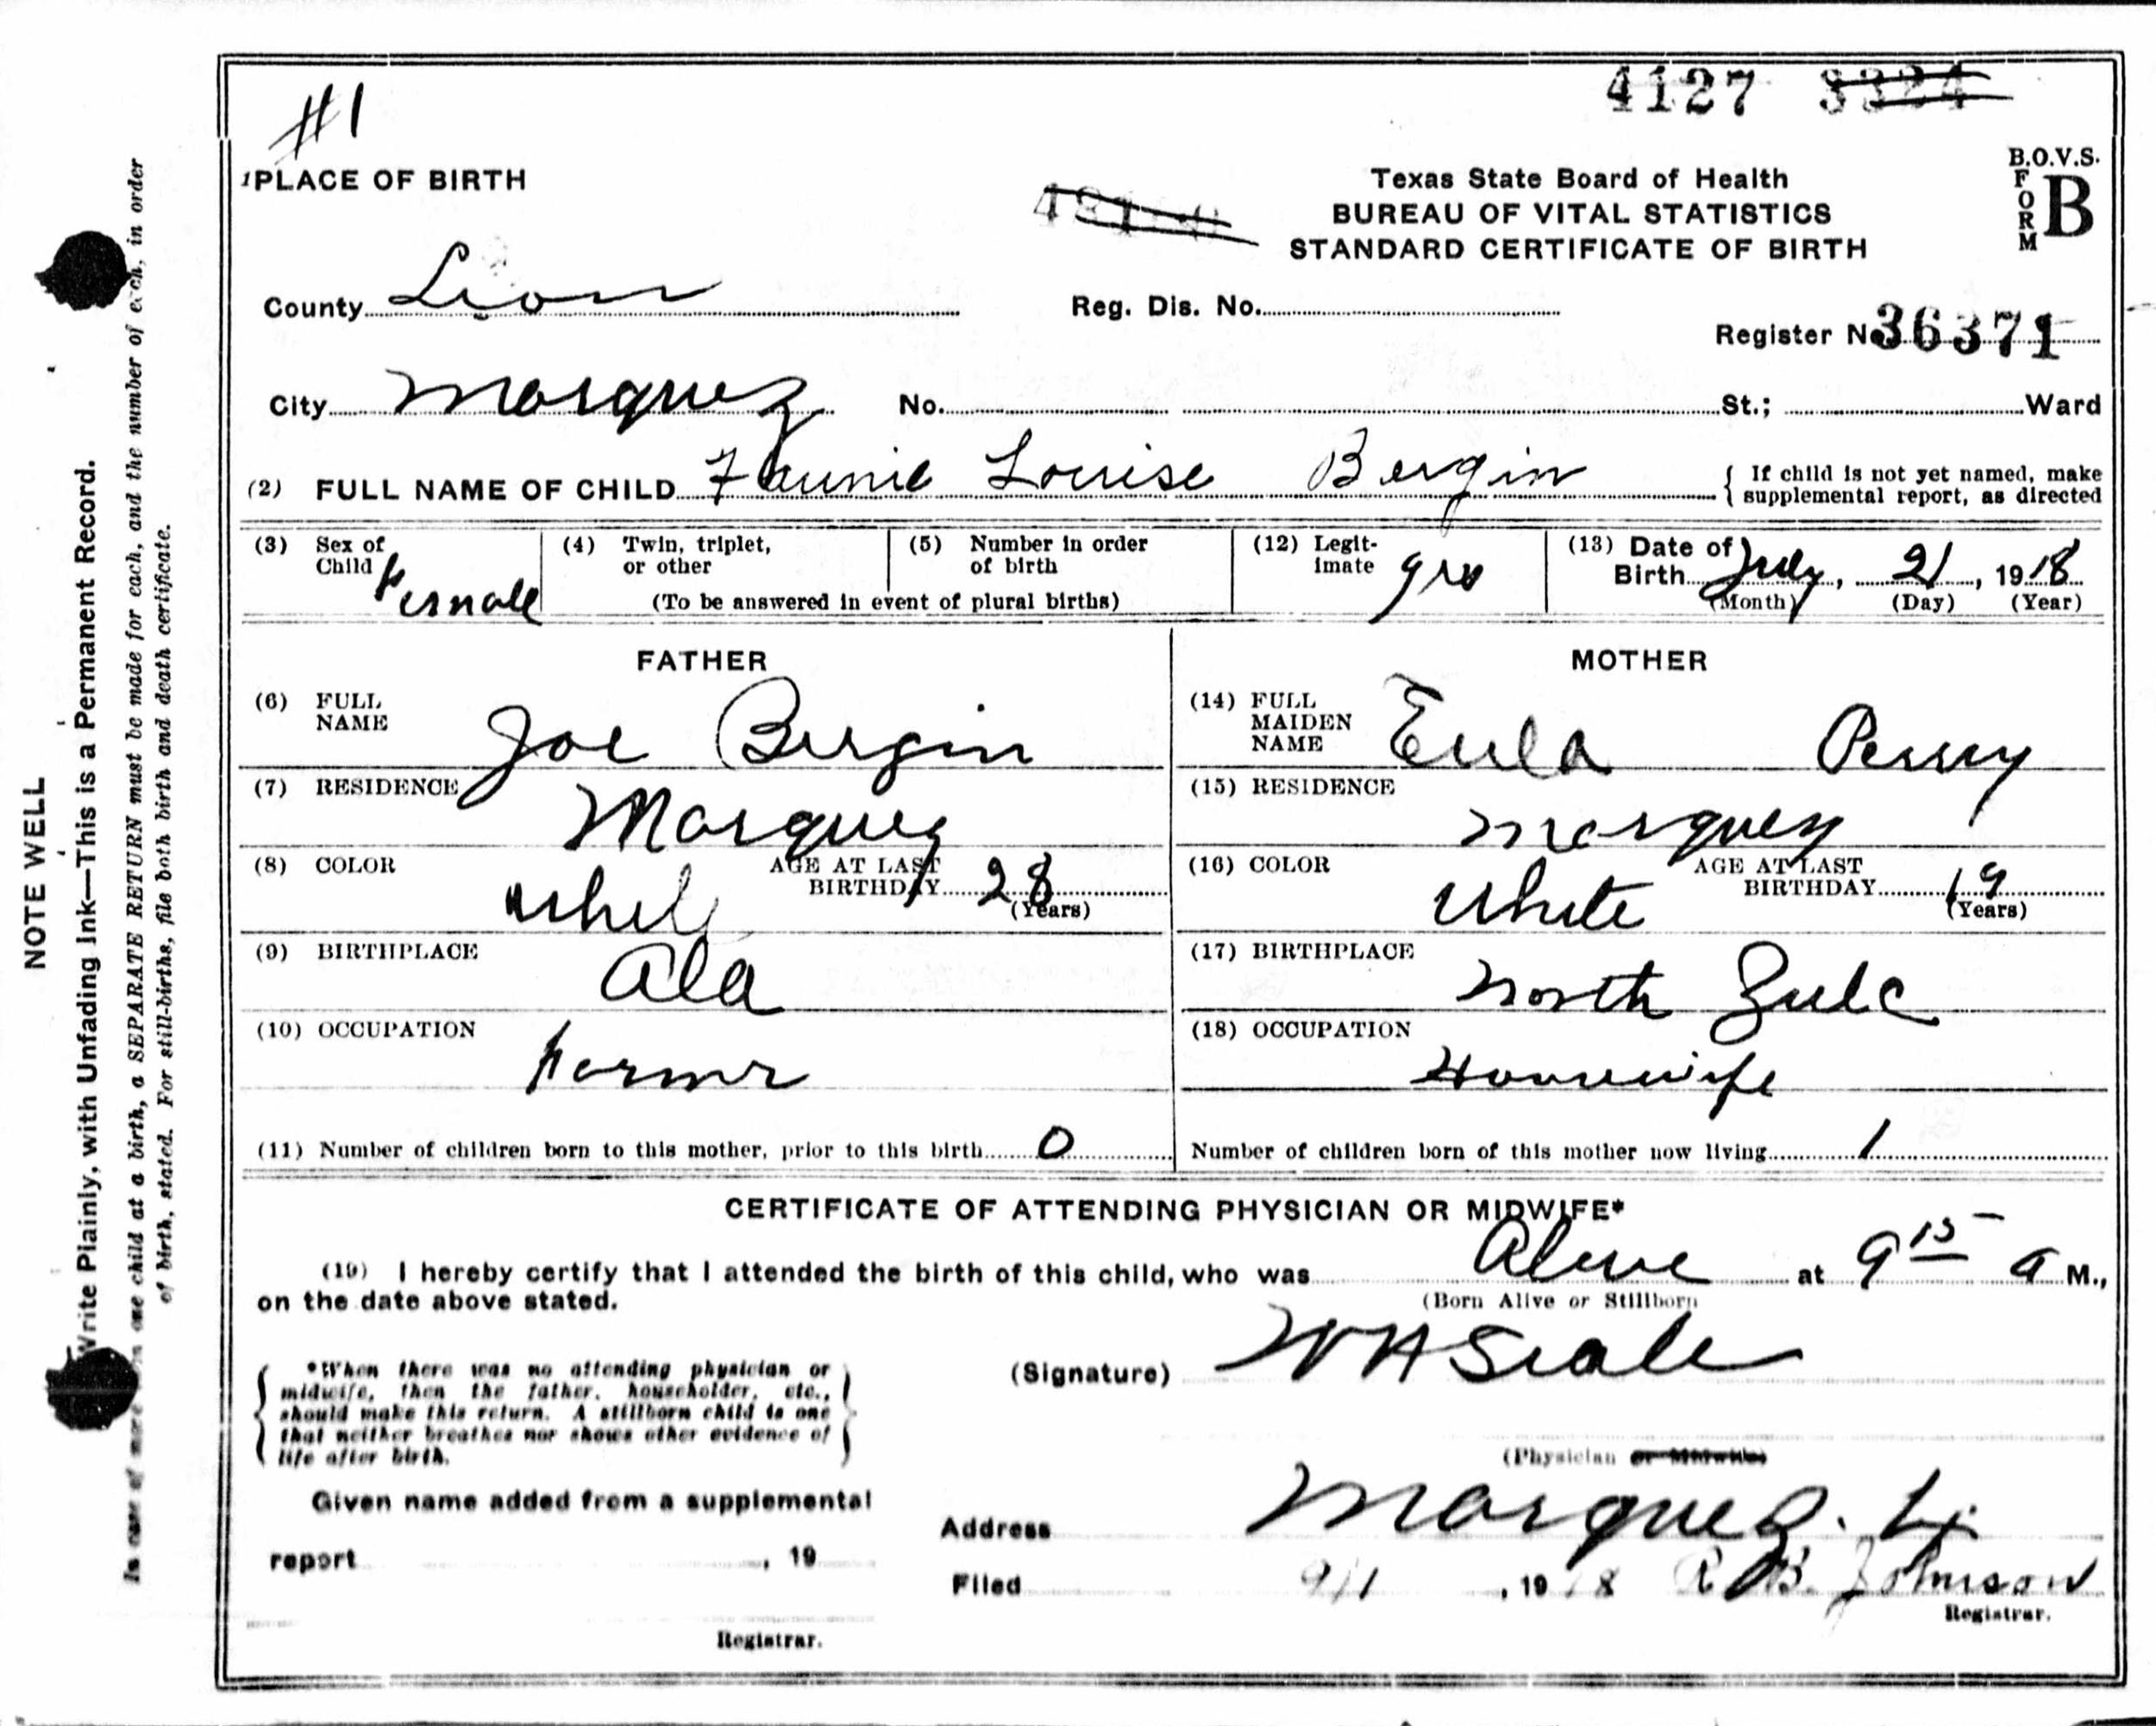 #1
4127 3324
1 PLACE OF BIRTH
Texas State Board of Health
BUREAU OF VITAL STATISTICS
STANDARD CERTIFICATE OF BIRTH
B.O.V.S. FORM B
County Leon Reg. Dis. No.
Register No 36371
City Marquez No. St.; Ward
(2) FULL NAME OF CHILD Fannie Louise Bergin { If child is not yet named, make
supplemental report, as directed
(3) Sex of Child Female (4) Twin, triplet, or other (5) Number in order of birth (12) Legitimate yes (13) Date of Birth July, 21, 1918
(To be answered in event of plural births) (Month) (Day) (Year)
FATHER MOTHER
(6) FULL NAME Joe Bergin (14) FULL MAIDEN NAME Eula Perry
(7) RESIDENCE Marquez (15) RESIDENCE Marquez
(8) COLOR White AGE AT LAST BIRTHDAY 28 (Years) (16) COLOR White AGE AT LAST BIRTHDAY 19 (Years)
(9) BIRTHPLACE Ala (17) BIRTHPLACE North
(10) OCCUPATION Farmer (18) OCCUPATION Housewife
(11) Number of children born to this mother, prior to this birth 0 Number of children born of this mother now living 1
CERTIFICATE OF ATTENDING PHYSICIAN OR MIDWIFE*
(19) I hereby certify that I attended the birth of this child, who was Alive at 9 15 a M.,
on the date above stated. (Born Alive or Stillborn
(Signature) W H Seale
*When there was no attending physician or
midwife, then the father, householder, etc.,
should make this return. A stillborn child is one
that neither breathes nor shows other evidence of
life after birth.
(Physician or Midwife)
Given name added from a supplemental
report , 19
Address Marquez. Tx.
Filed 9/1, 1918 R. B. Johnson
Registrar.
Registrar.
NOTE WELL
Write Plainly, with Unfading Ink—This is a Permanent Record.
In case of more than one child at a birth, a SEPARATE RETURN must be made for each, and the number of each, in order
of birth, stated. For still-births, file both birth and death certificate.